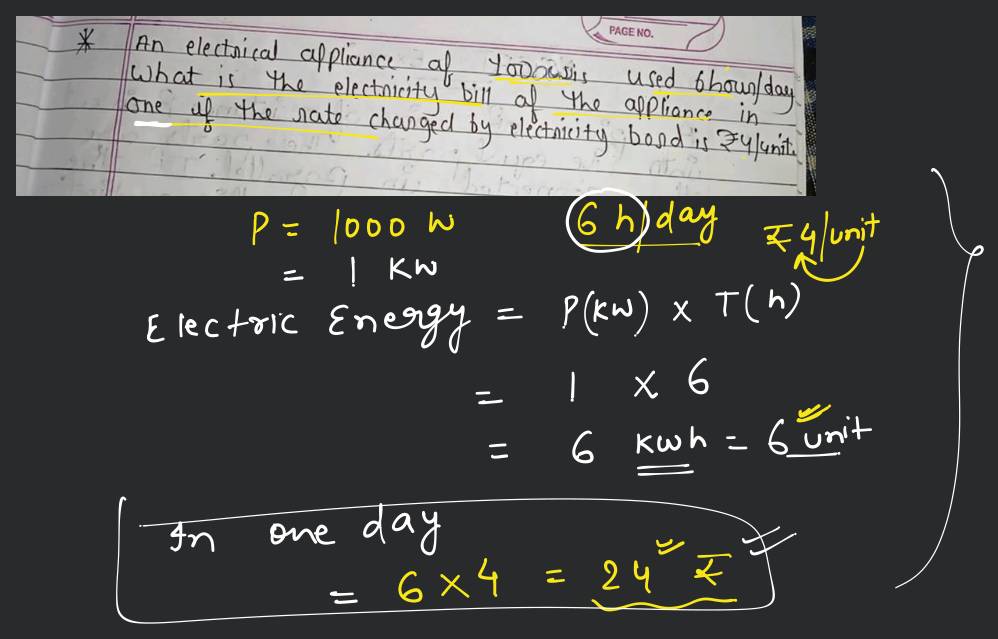 PAGE NO.
* An electrical appliance of 1000w is used 6hour/day
What is the electricity bill of the appliance in
one if the rate charged by electricity bord is ₹4/unit.
P = 1000 W 6 h/day ₹4/unit
= 1 KW
Electric Energy = P(KW) x T(h)
= 1 x 6
= 6 Kwh = 6 unit
In one day
= 6 x 4 = 24 ₹